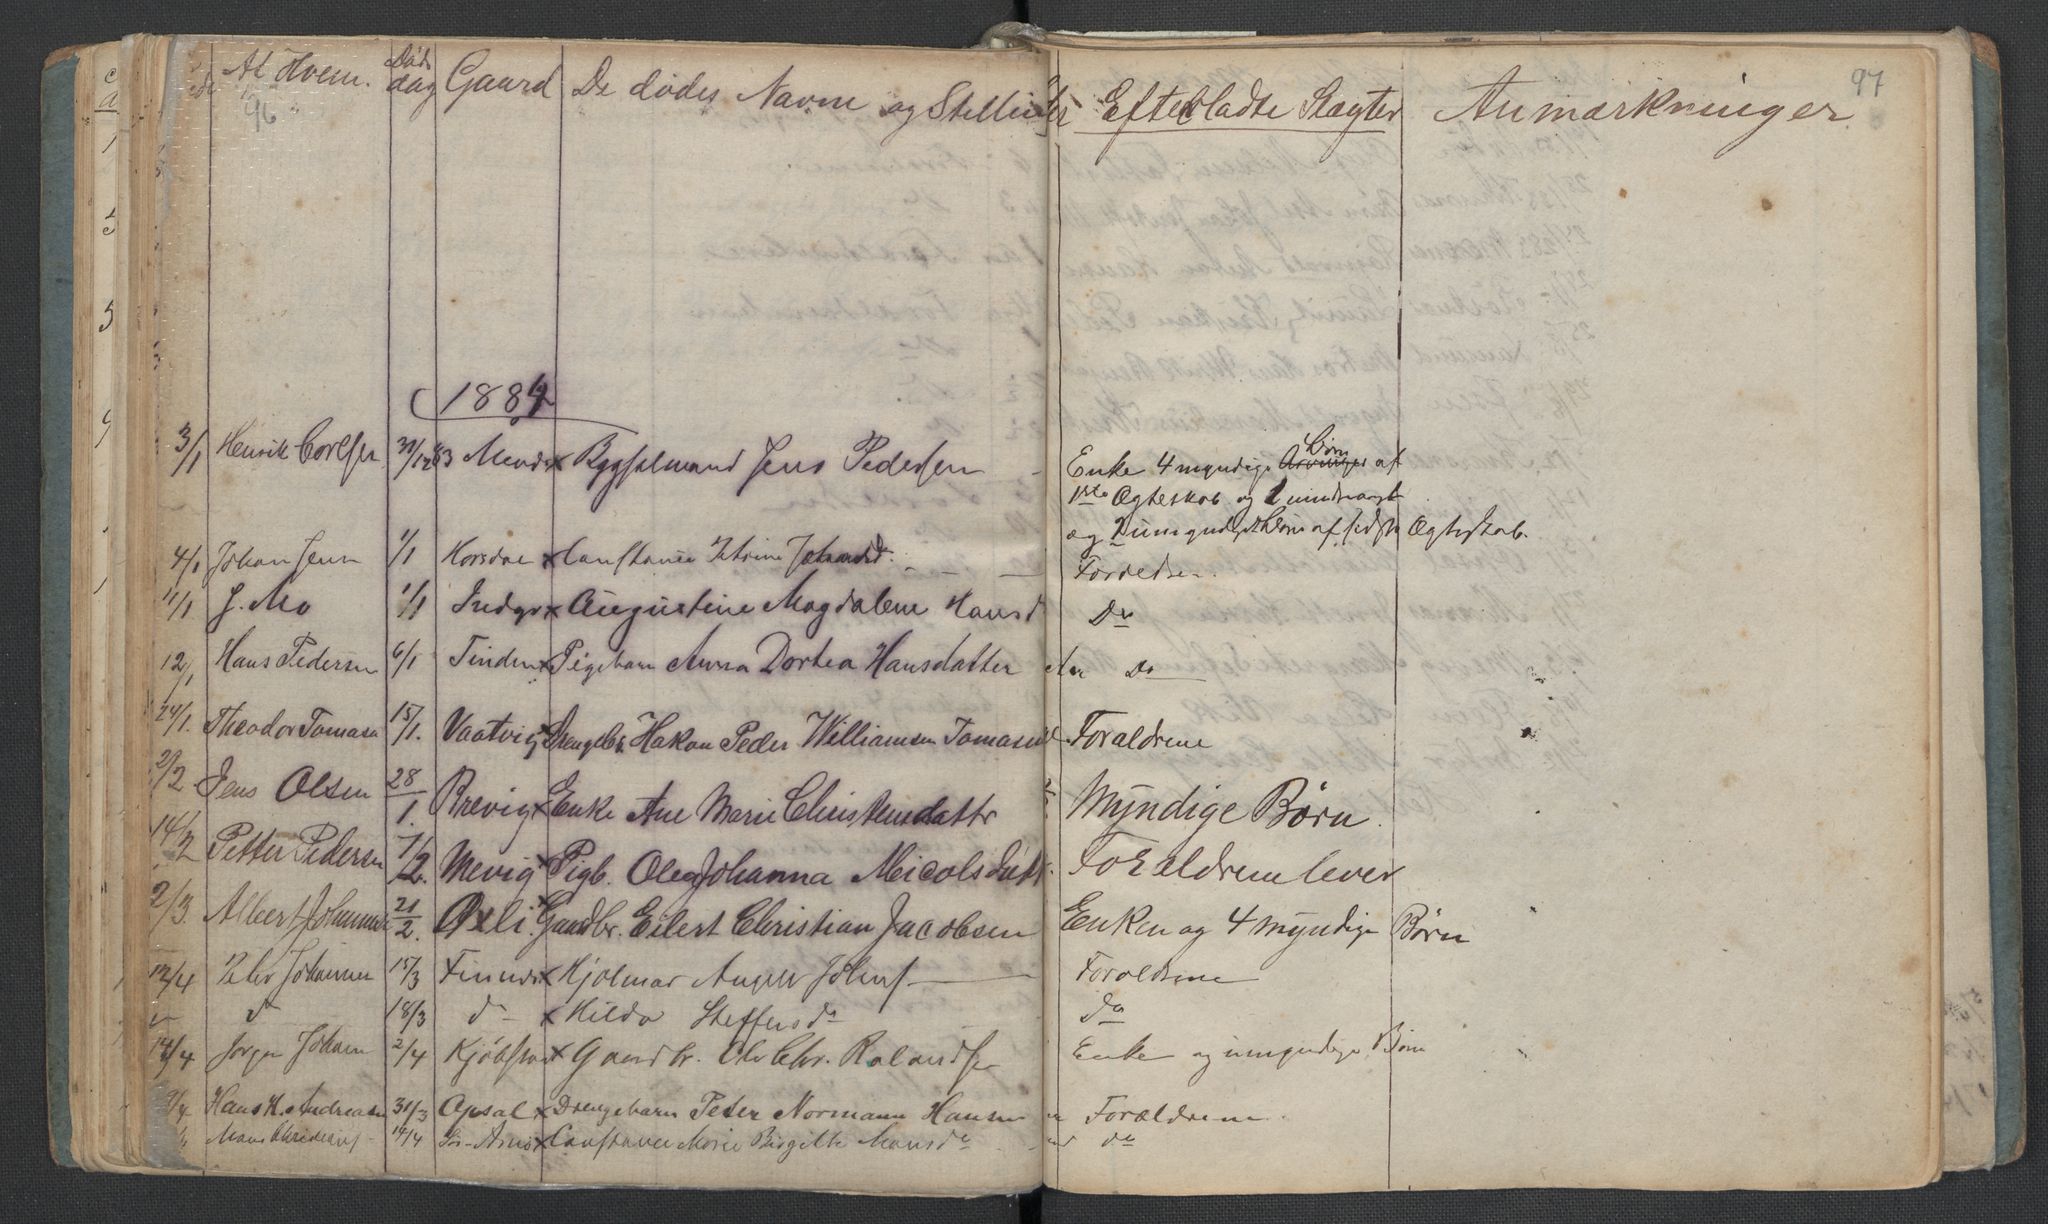 Af Hvem. Døds dag Gaard De dødes Navne og Stilling Efterladte Slægter Anmærkninger
96 97
1884
3/1 Henrik Carlsen 30/12 83 Bygselmand Jens Pedersen Enke 4 myndige Børn af
1ste Ægteskab og
og 2 umyndige Børn af Ægteskab.
4/1 Johan Jens 1/1 Horsdal Petrine Johansd.
11/1 J. Mo 1/1 Indgr Augustine Magdalene Hansd Do
12/1 Hans Pedersen 6/1 Finden Pigebarn Anna Dortea Hansdatter Do
24/1. Theodor Tomasen 15/1. Vaatvig Drengeb. Hakon Peder Williamsen Tomasen Foraldrene
2/2 Jens Olsen 28/1. Brevig Enke Ane Marie Christensdattr Myndige Børn.
14/2 Petter Pedersen 7/2. Mevig Pigb. Olea Johanna Nicolsdatt Foraldrene lever
2/3. Albert Johannes 21/2. Øxli Gaardbr. Eilert Christian Jacobsen Enken og 4 myndige Børn
12/4 Peter Johannes 15/3 Finnes Hjolmar Johns Foraldrene
do 18/3 do Hilda Steffensd do
14/4 Jørgen Johan 2/4 Gaardbr. Ole Chr. Rolandsen Enke og umyndige Børn
Hans K. Andreasen 31/3 Opsal Drengebarn Peder Normann Hansen Forældrene.
14/4 Constance Marie Birgitte Monsdr do